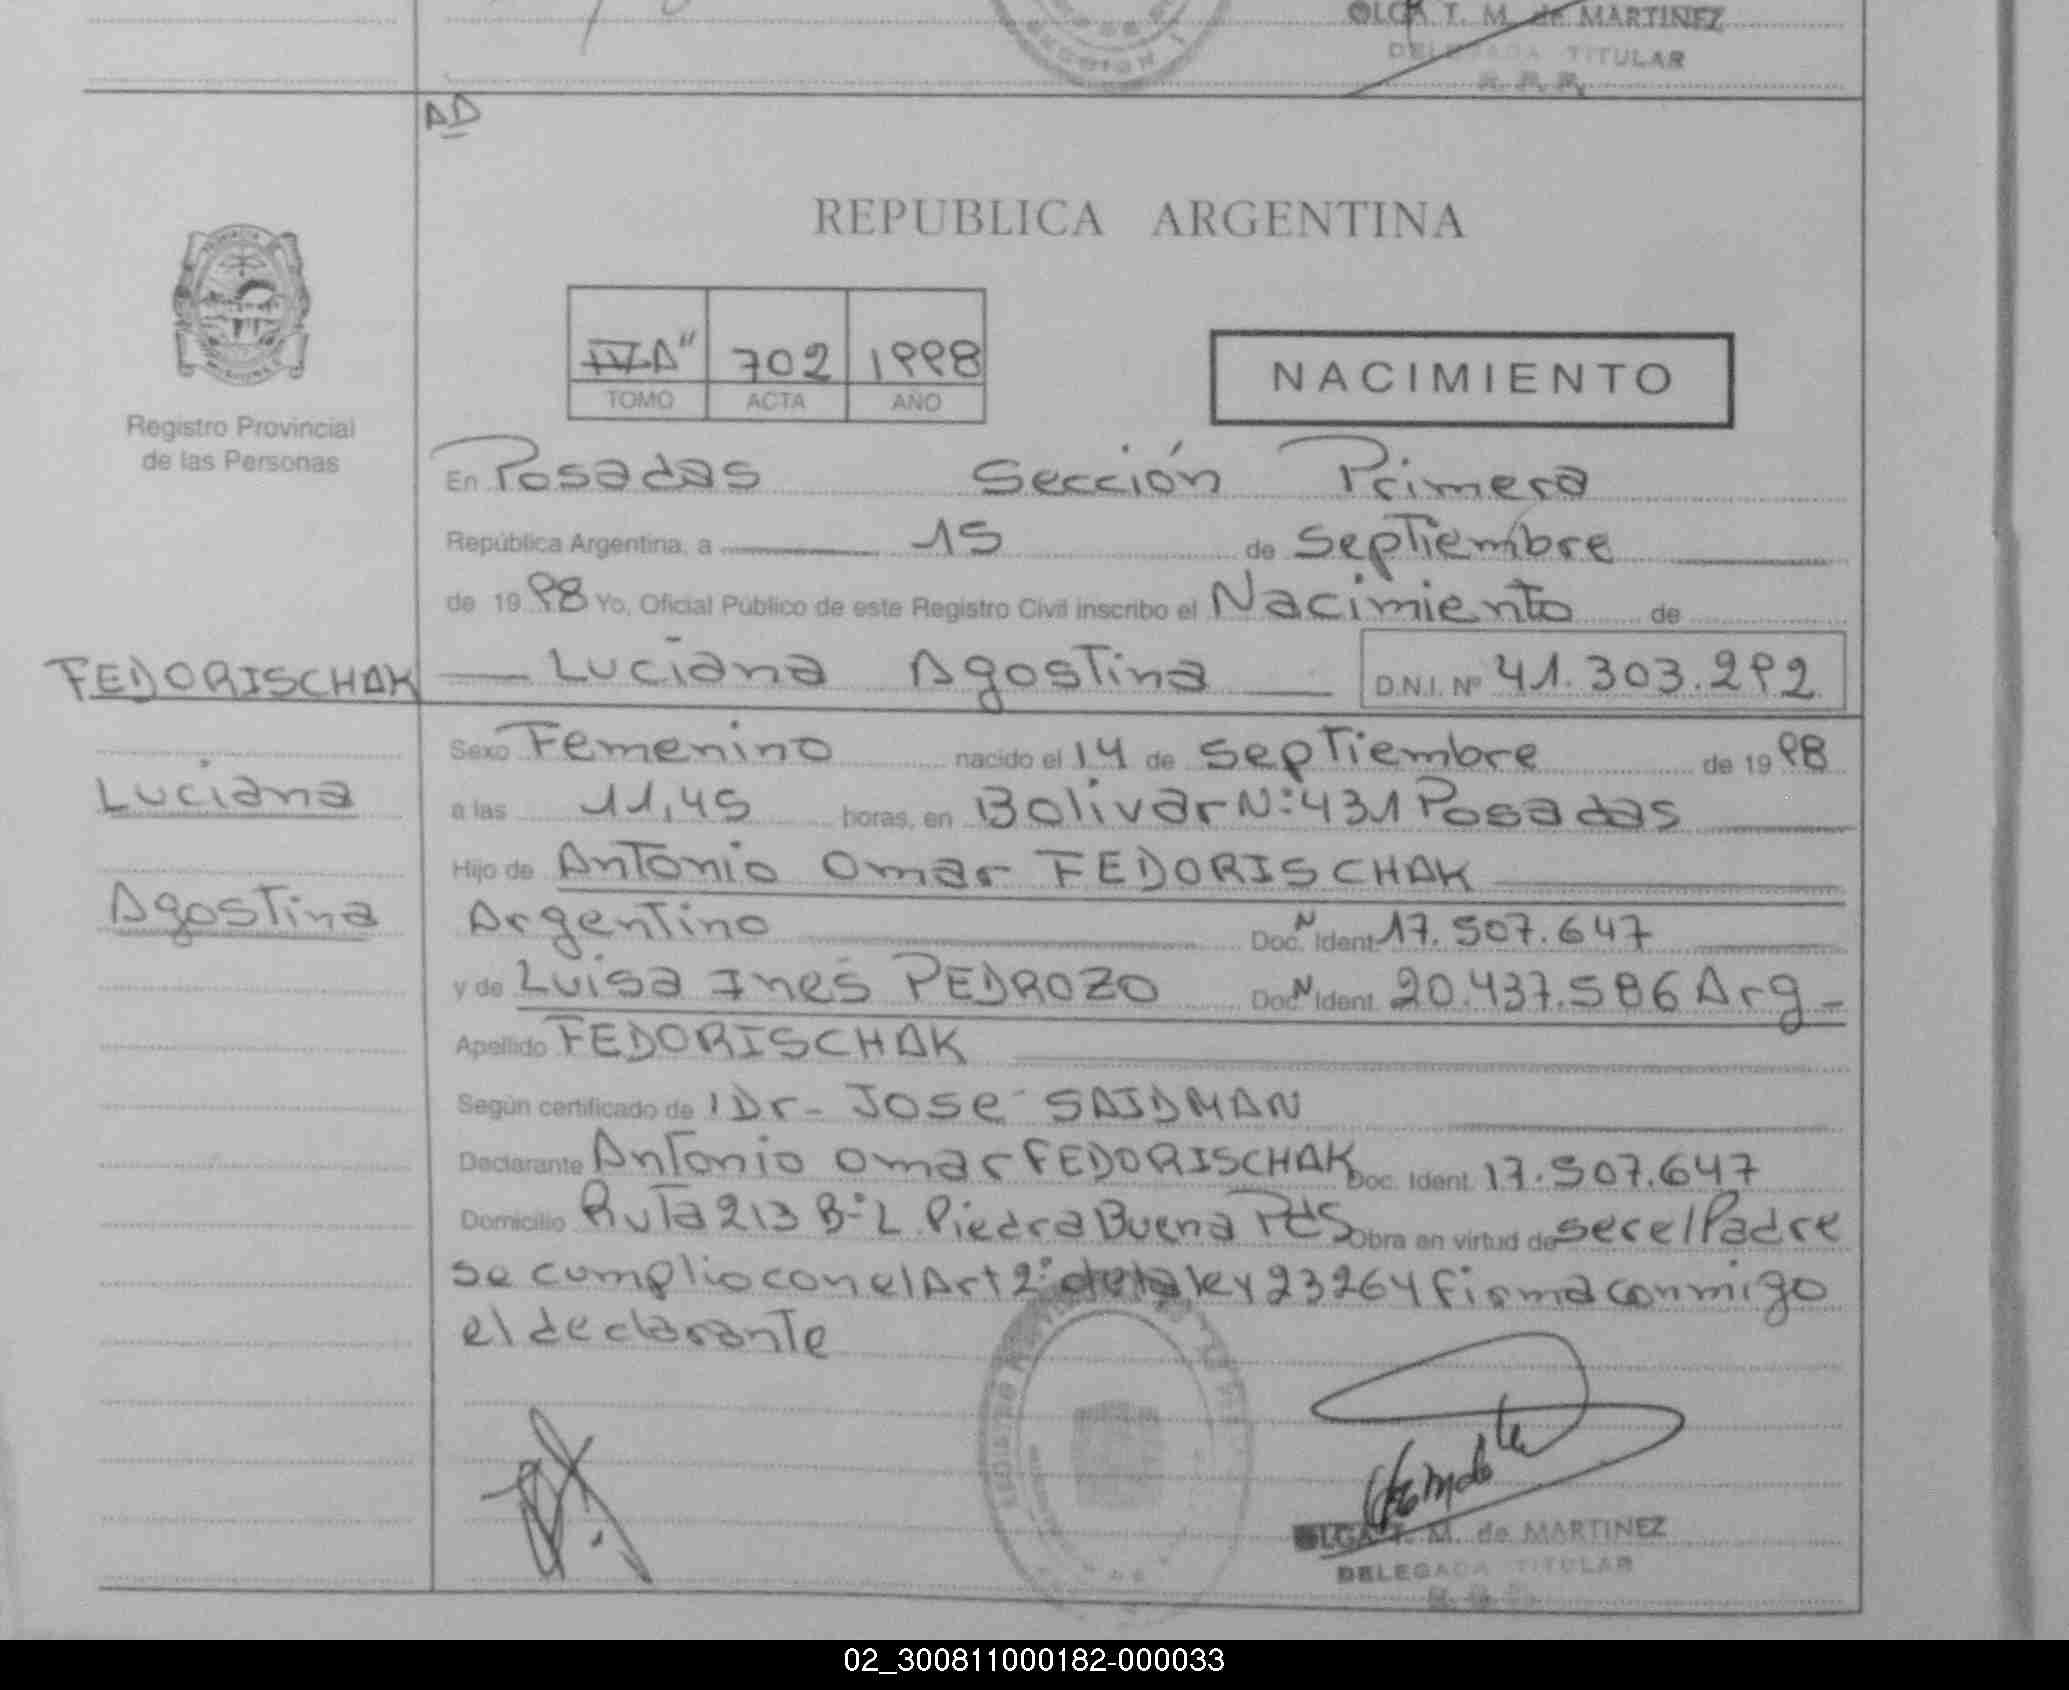 OLGA T. M. de MARTINEZ
DELEGADA TITULAR
AD
REPUBLICA ARGENTINA
IV A" 702 1998
TOMO ACTA AÑO
NACIMIENTO
Registro Provincial
de las Personas
En Posadas Sección Primera
República Argentina, a 15 de Septiembre
de 1998 Yo, Oficial Público de este Registro Civil inscribo el Nacimiento de
FEDORISCHAK
Luciana Agostina D.N.I. Nº 41.303.292
Luciana
Agostina
Sexo Femenino nacido el 14 de Septiembre de 1998
a las 11,45 horas, en Bolivar N:431 Posadas
Hijo de Antonio Omar FEDORISCHAK
Argentino Doc. N Ident. 17.507.647
y de Luisa Ines PEDROZO Doc. N Ident. 20.437.586 Arg
Apellido FEDORISCHAK
Según certificado de Dr- Jose SAIDMAN
Declarante Antonio Omar FEDORISCHAK Doc. Ident. 17.507.647
Domicilio Ruta 213 Bº L. Piedra Buena Pds Obra en virtud de ser el Padre
se cumplio con el Art 2º de la ley 23264 firma conmigo
el declarante
OLGA T. M. de MARTINEZ
DELEGADA TITULAR
02_300811000182-000033